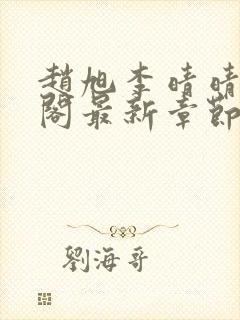 趙旭李晴晴
閣最新章節
劉海哥